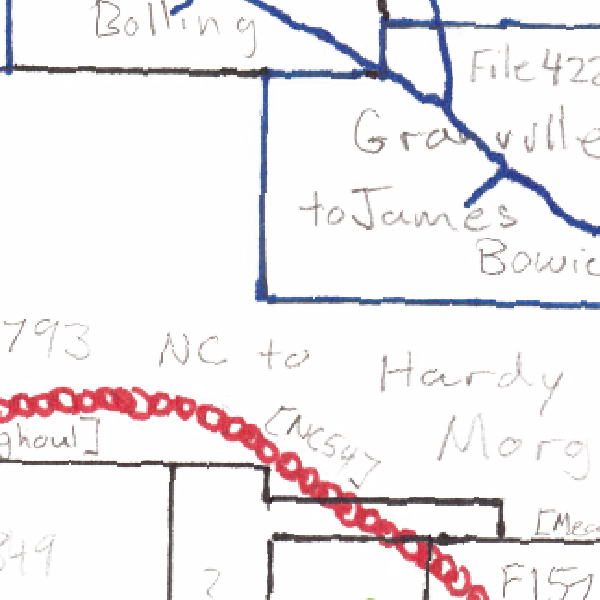 Bolling
File 422
Granville
to James
Bowie
793 NC to Hardy
Morg
[NC54]
ghoul]
[Mea
849
?
F151